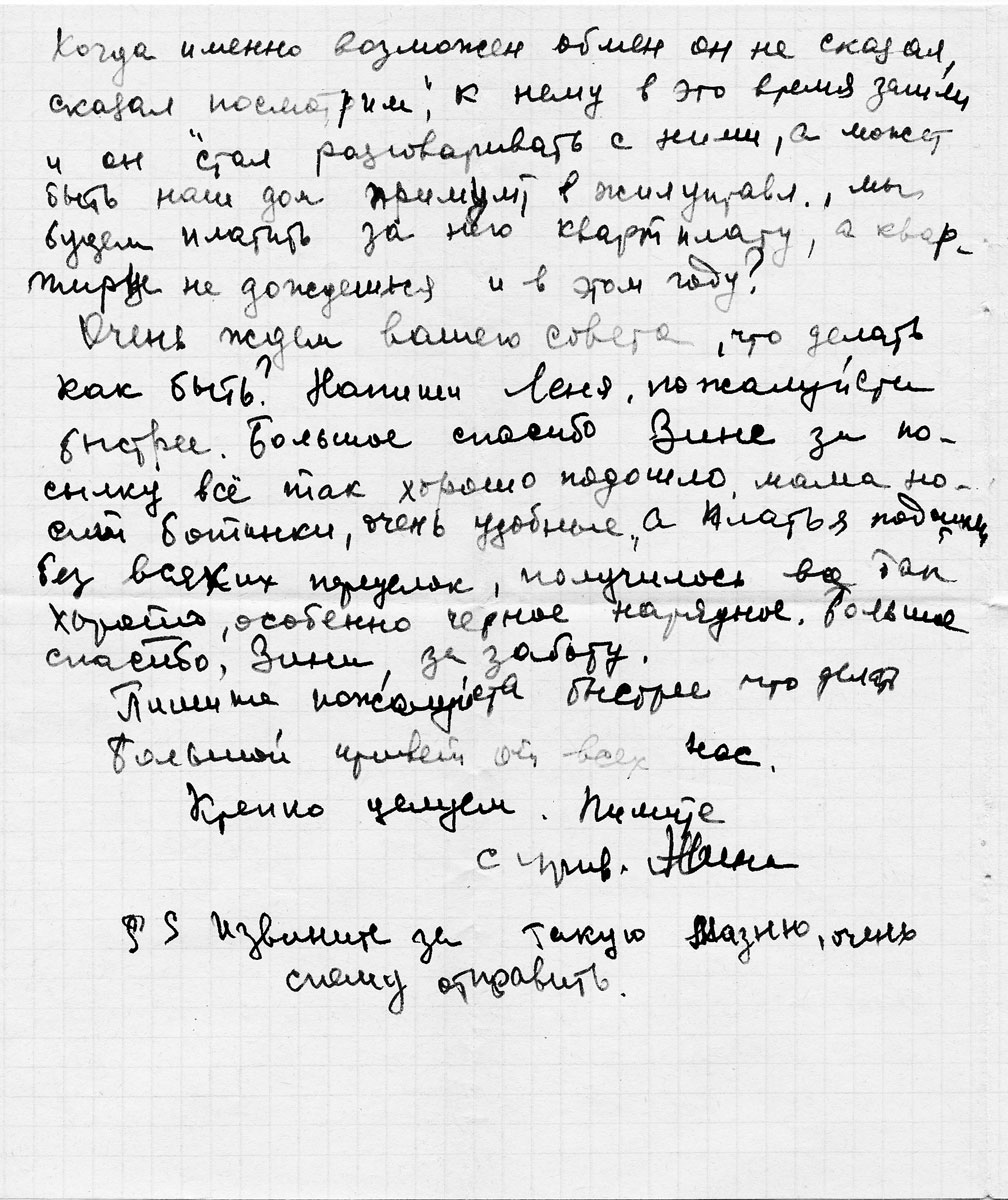 Когда именно возможен обмен он не сказал,
сказал "посмотрим", к нему в это время зашли
и он стал разговаривать с ними, а может
быть наш дом примут в жилуправл., мы
будем платить за него квартплату, а квар-
тиры не дождешься и в этом году?
Очень ждем вашего совета, что делать
как быть? Напиши Леня, пожалуйста
быстрее. Большое спасибо Зине за по-
сылку всё так хорошо подошло, мама но-
сит ботинки, очень удобные, а платья подошли
без всяких переделок, получилось так
хорошо, особенно черное нарядное. Большое
спасибо, Зина, за заботу.
Пишите пожалуйста быстрее что делать
Большой привет от всех нас.
Крепко целуем. Пишите
с прив.
PS Извините за такую мазню, очень
спешу отправить.